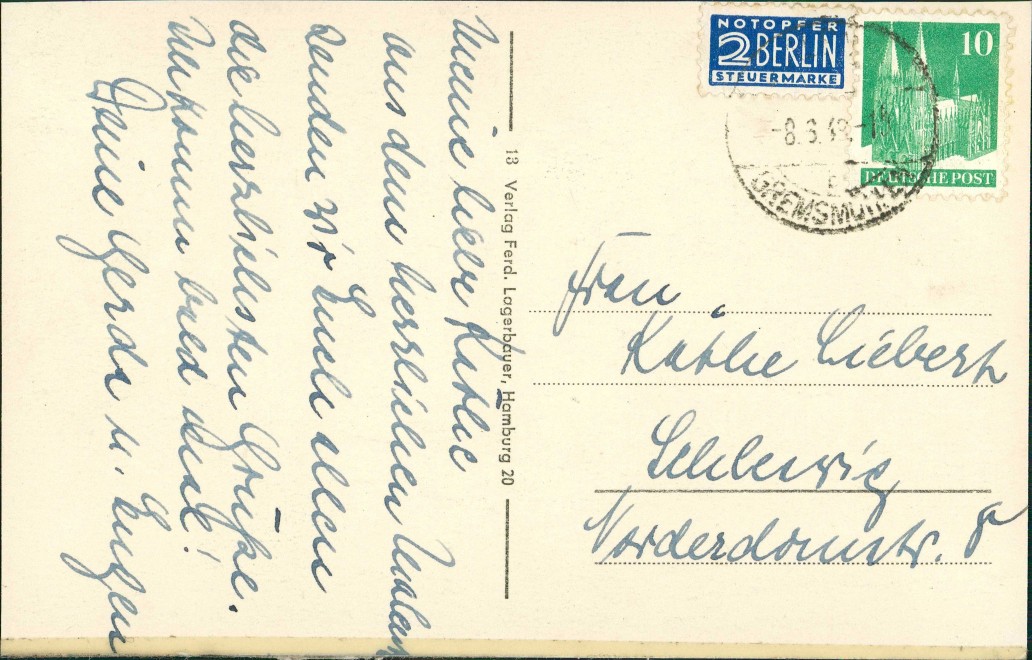 Meine liebe Käthe
aus dem herrlichen Urlaub
senden wir Euch allen
die herzlichsten Grüße.
bald
Deine Gerda u. Eugen
13 Verlag Ferd. Lagerbauer, Hamburg 20
NOTOPFER
2 BERLIN
STEUERMARKE
10
DEUTSCHE POST
GREMSMÜHLEN
Frau
Käthe Liebert
Schleswig
Norderdomstr. 8